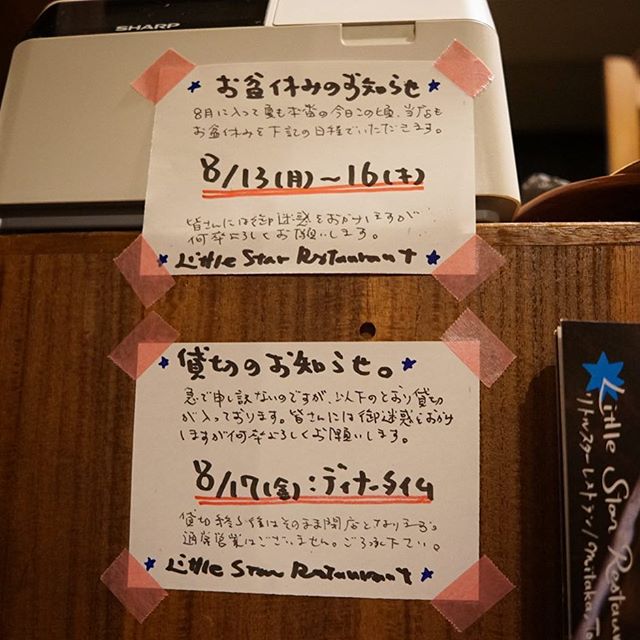 SHARP
お盆休みのお知らせ
8月に入って夏も本番の今日この頃、当店も
お盆休みを下記の日程でいただきます。
8/13(月)〜16(木)
皆さんには御迷惑をおかけしますが
何卒よろしくお願いします。
Little Star Restaurant
貸切のお知らせ。
急で申し訳ないのですが、以下のとおり貸切
が入っております。皆さんには御迷惑をおかけ
しますが何卒よろしくお願いします。
8/17(金):ディナータイム
貸切終了後はそのまま閉店となります。
通常営業はございません。ご了承下さい。
Little Star Restaurant
Little Star Restau
リトルスターレストラン/Mitaka